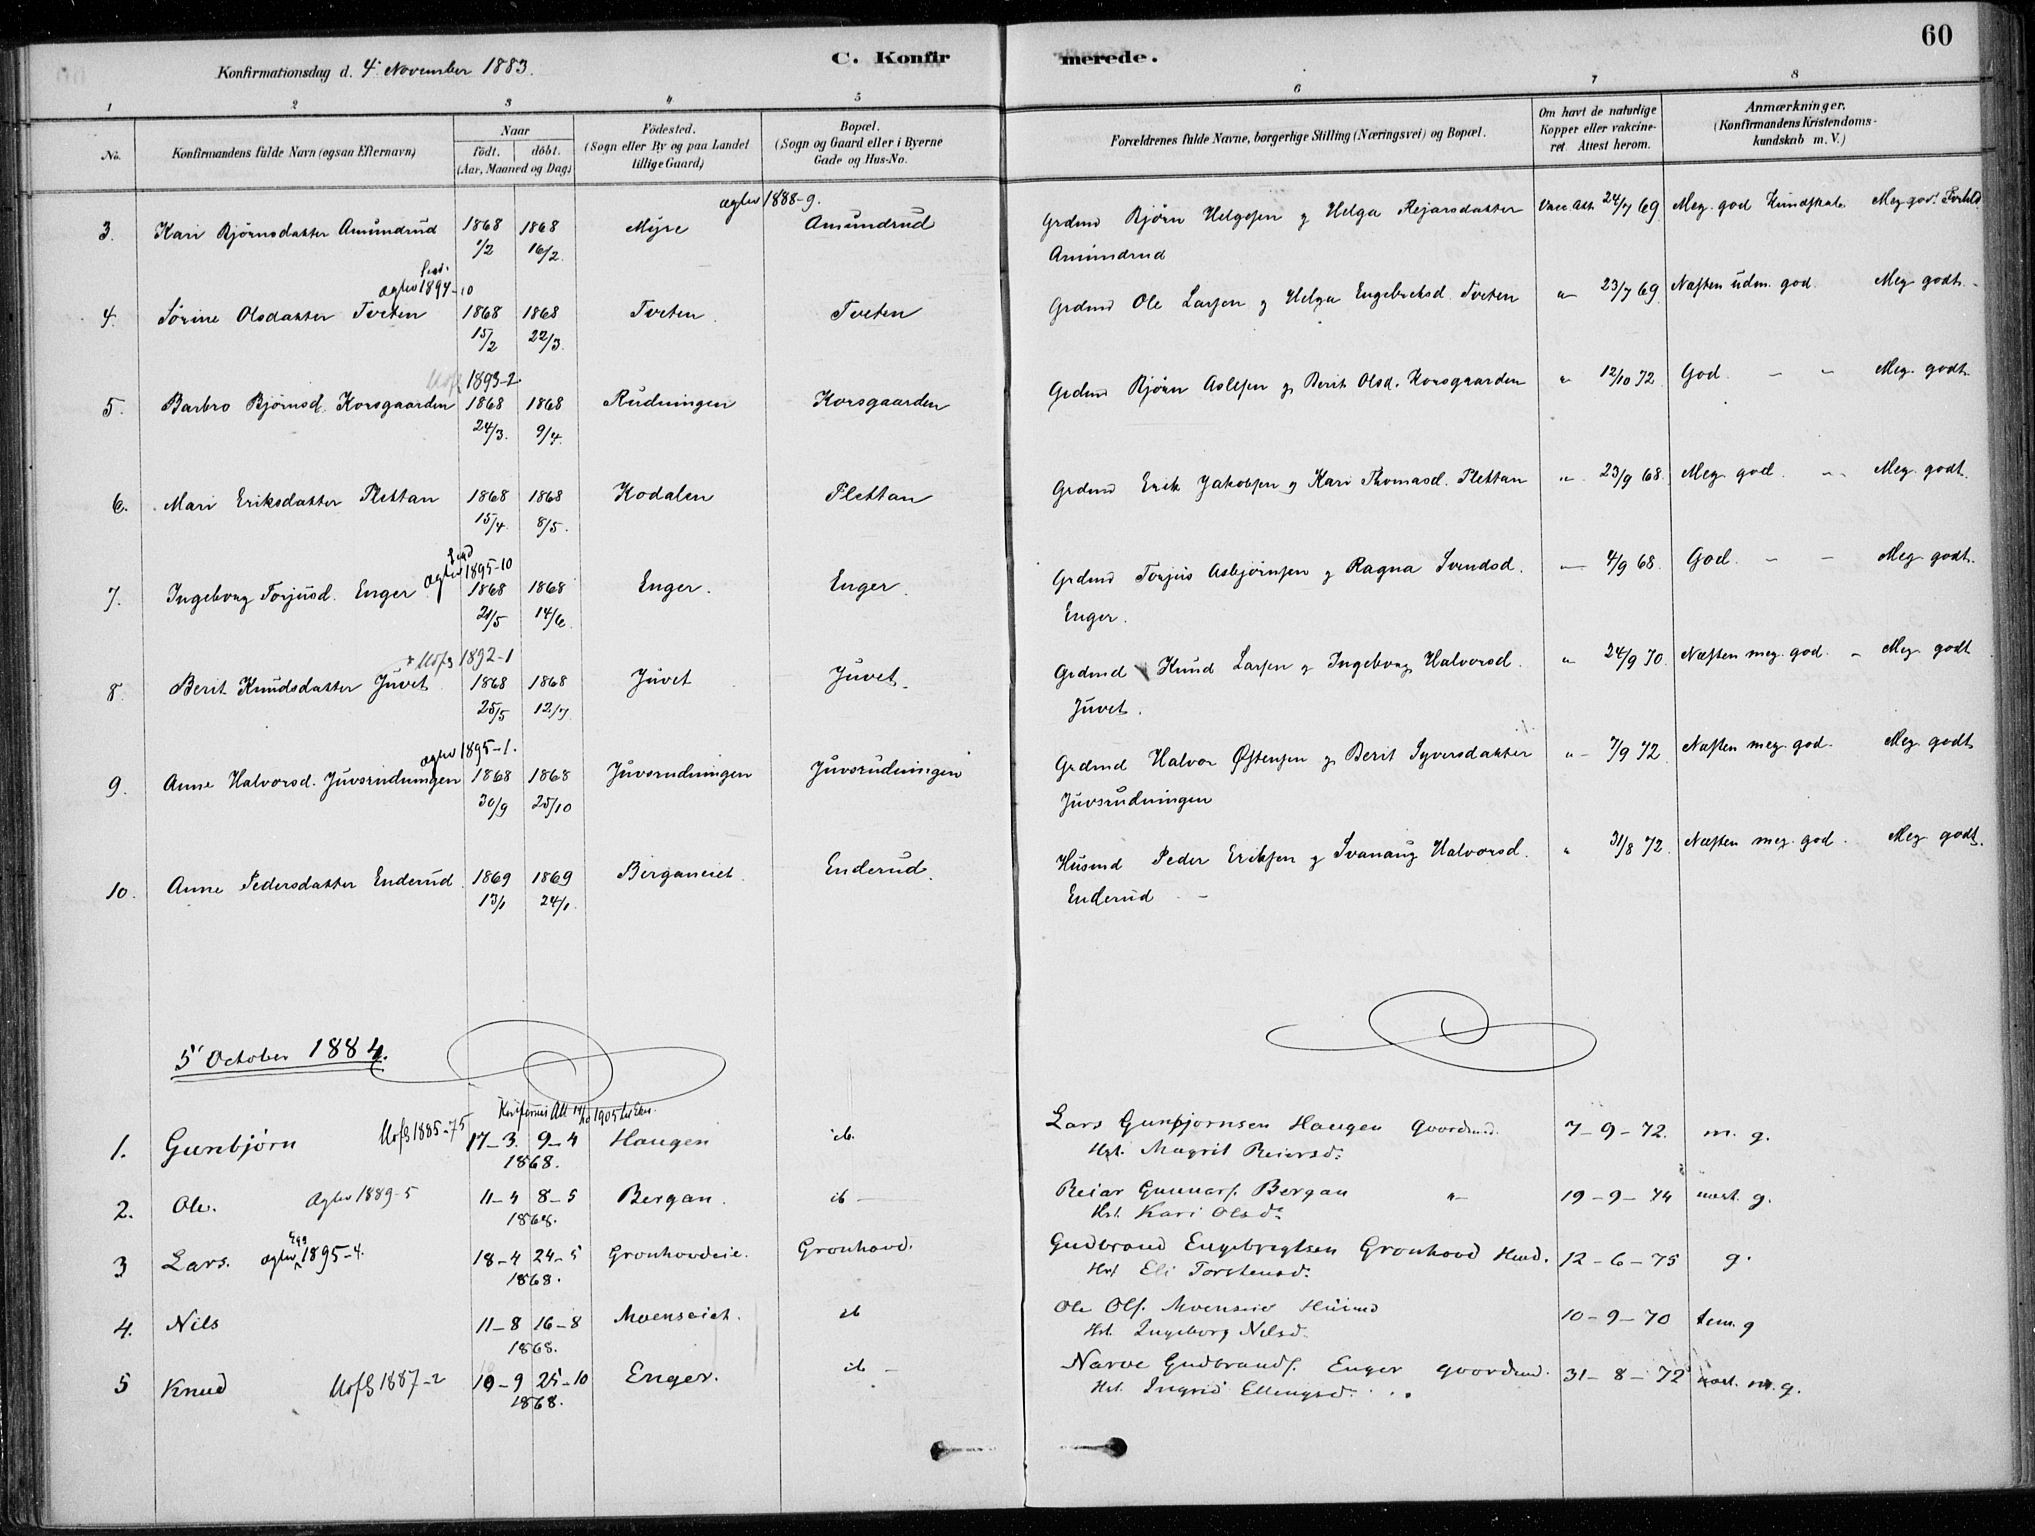 60
Konfirmationsdag d. 4. November 1883.
C. Konfirmerede.
1 2 3 4 5 6 7 8
No.
Konfirmandens fulde Navn (ogsaa Efternavn)
Naar
født. døbt.
(Aar, Maaned og Dag)
Fødested.
(Sogn eller By og paa Landet
tillige Gaard)
Bopæl.
(Sogn og Gaard eller i Byerne
Gade og Hus-No.
Forældrenes fulde Navne, borgerlige Stilling (Næringsvei) og Bopæl.
Om havt de naturlige
Kopper eller vakcine-
ret. Attest herom.
Anmærkninger.
(Konfirmandens Kristendoms-
kundskab m. V.)
ægtev 1888-9.
3. Kari Bjørnsdatter Amundrud 1868 1868 Myre Amundrud Grdmd Bjørn Helgesen g Helga Rejarsdatter Vacc. Att. 24/7 69 Meg. god Kundskab Meg. godt Forhld.
1/2 16/2. Amundrud
ægtev 1894-10
4. Sørine Olsdatter Tveten 1868 1868 Tveten Tveten Grdmd Ole Larsen g Helga Engebretsd. Tveten " 23/7 69. Næsten udm. god. Meg. godt.
15/2 22/3.
Uofs 1893-2.
5. Barbro Bjørnsd. Korsgaarden 1868 1868 Rudningen Korsgaarden Grdmd Bjørn Aslesen g Berit Olsd. Korsgaarden " 12/10 72. God. - " Meg. godt.
24/3. 9/4.
6. Mari Eriksdatter Plettan 1868 1868 Kodalen Plettan Grdmd Erik Jakobsen g Kari Thomasd. Plettan " 23/9 68. Meg. god. - Meg. godt.
15/4. 8/5.
ægtev 1895-10
7. Ingeborg Torjusd. Enger 1868 1868 Enger. Enger. Grdmd Torjus Asbjørnsen g Ragna Svendsd. - 4/9 68. God. - - Meg. godt.
21/5 14/6. Enger.
+ Uofs 1892-1
8. Berit Knudsdatter Juvet 1868 1868 Juvet Juvet. Grdmd Knud Larsen g Ingeborg Halvorsd. " 24/9 70. Næsten meg. god. - Meg. godt
25/5 12/7. Juvet.
ægtev 1895-1.
9. Anne Halvorsd. Juvsrudningen 1868 1868 Juvsrudningen Juvsrudningen Grdmd Halvor Østensen g Berit Syversdatter " 7/9 72. Næsten meg. god. Meg. godt
30/9 25/10 Juvsrudningen
10. Anne Pedersdatter Enderud 1869 1869 Berganeiet. Enderud. Husmd Peder Eriksen g Svanaug Halvorsd. " 31/8 72. Næsten meg. god. Meg. godt.
13/1 24/1. Enderud -
5' October 1884.
1. Gunbjørn Uofs 1885-75 17-3. 9-4 Haugen ib. Lars Gunbjørnsen Haugen Gaardmd. 7-9-72. m. g.
1868. Hst. Magrit Reiersd.
2. Ole. ægtev 1889-5 11-4 8-5 Bergan. ib - Reiar Gunnars. Bergan " 19-9-74 næst. g.
1868. Hst. Kari Olsd.
3 Lars. ægtev 1895-4. 18-4 24-5 Grønhovdeie. Grønhovd. Gudbrand Engebrigtsen Grønhovd Hmd. 12-6-75 g.
1868. Hst Eli Torstensd.
4. Nils 11-8 16-8 Moenseiet. ib Ole Ols. Moenseie Husmd 10-9-70 tem. g
1868. Hst. Ingeborg Nilsd.
5 Knud Uofs 1887-2 10-9 25-10 Enger. ib - Narve Gudbrands. Enger Gaardmd. 31-8-72 næst. m. g.
1868. Hst. Ingrid Ellingsd.